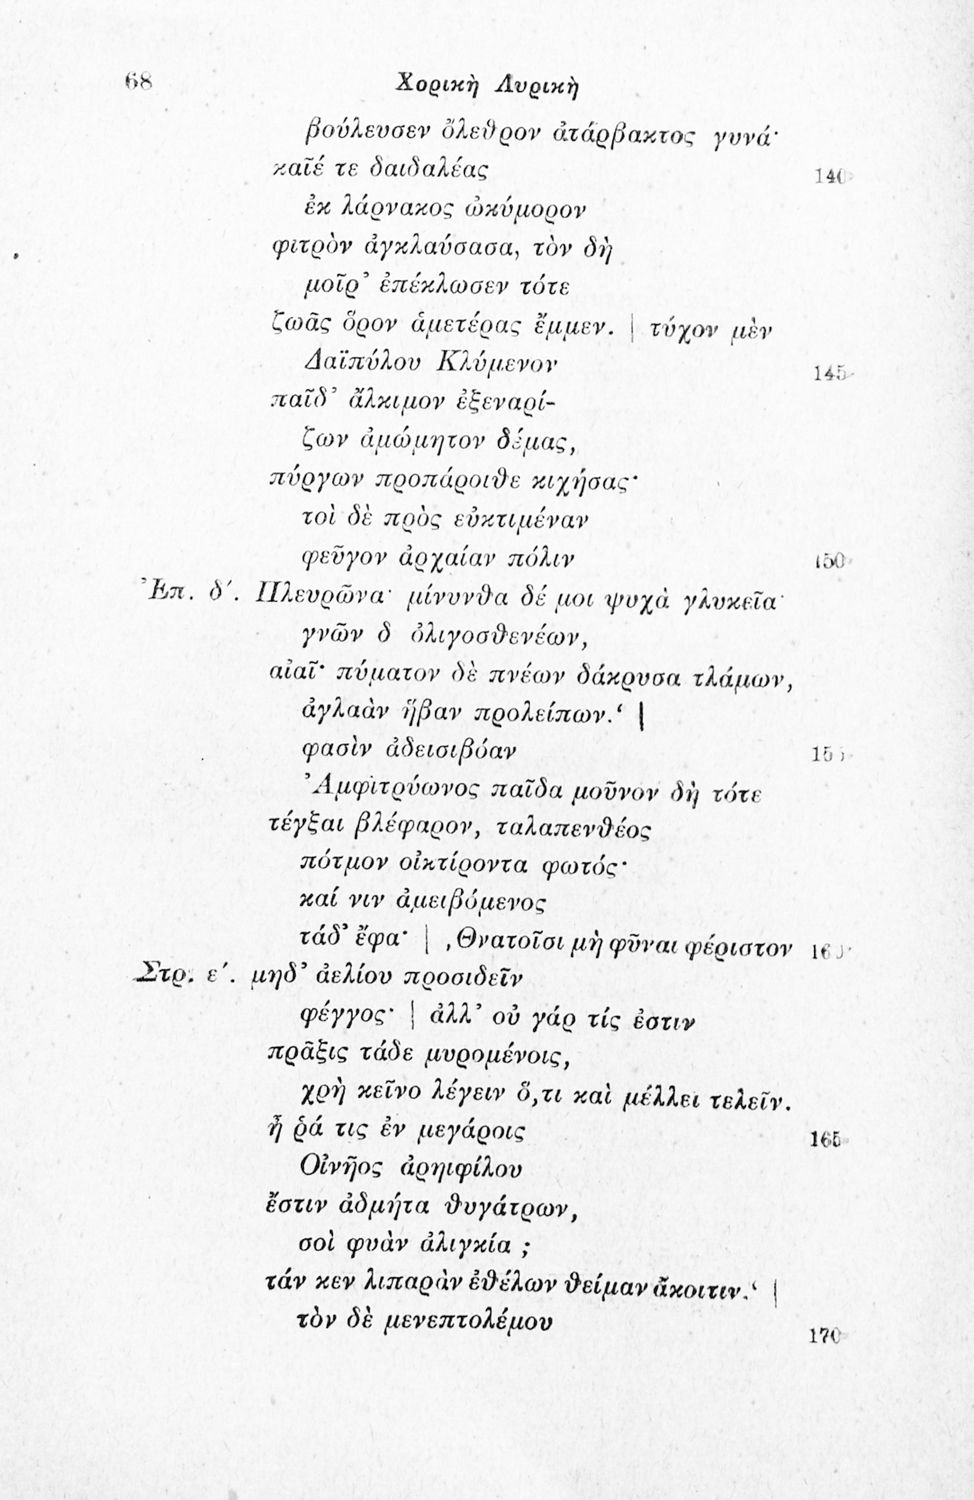 68 Χορικὴ Λυρικὴ
βούλευσεν ὄλεθρον ἀτάρβακτος γυνά·
καῖέ τε δαιδαλέας 140
ἐκ λάρνακος ὠκύμορον
φιτρὸν ἀγκλαύσασα, τὸν δὴ
μοῖρ’ ἐπέκλωσεν τότε
ζωᾶς ὅρον ἁμετέρας ἔμμεν. | τύχον μὲν
Δαϊπύλου Κλύμενον 145
παῖδ’ ἄλκιμον ἐξεναρί-
ζων ἀμώμητον δέμας,
πύργων προπάροιθε κιχήσας·
τοὶ δὲ πρὸς εὐκτιμέναν
φεῦγον ἀρχαίαν πόλιν 150
Ἐπ. δ΄. Πλευρῶνα· μίνυνθα δέ μοι ψυχὰ γλυκεῖα·
γνῶν δ ὀλιγοσθενέων,
αἰαῖ· πύματον δὲ πνέων δάκρυσα τλάμων,
ἀγλαὰν ἥβαν προλείπων.‘ |
φασὶν ἀδεισιβόαν 155
Ἀμφιτρύωνος παῖδα μοῦνον δὴ τότε
τέγξαι βλέφαρον, ταλαπενθέος
πότμον οἰκτίροντα φωτός·
καί νιν ἀμειβόμενος
τάδ’ ἔφα· | ‚Θνατοῖσι μὴ φῦναι φέριστον 160
Στρ. ε΄. μηδ’ ἀελίου προσιδεῖν
φέγγος· | ἀλλ’ οὐ γάρ τίς ἐστιν
πρᾶξις τάδε μυρομένοις,
χρὴ κεῖνο λέγειν ὅ,τι καὶ μέλλει τελεῖν.
ἦ ῥά τις ἐν μεγάροις 165
Οἰνῆος ἀρηιφίλου
ἔστιν ἀδμήτα θυγάτρων,
σοὶ φυὰν ἀλιγκία ;
τάν κεν λιπαρὰν ἐθέλων θείμαν ἄκοιτιν.‘ |
τὸν δὲ μενεπτολέμου 170